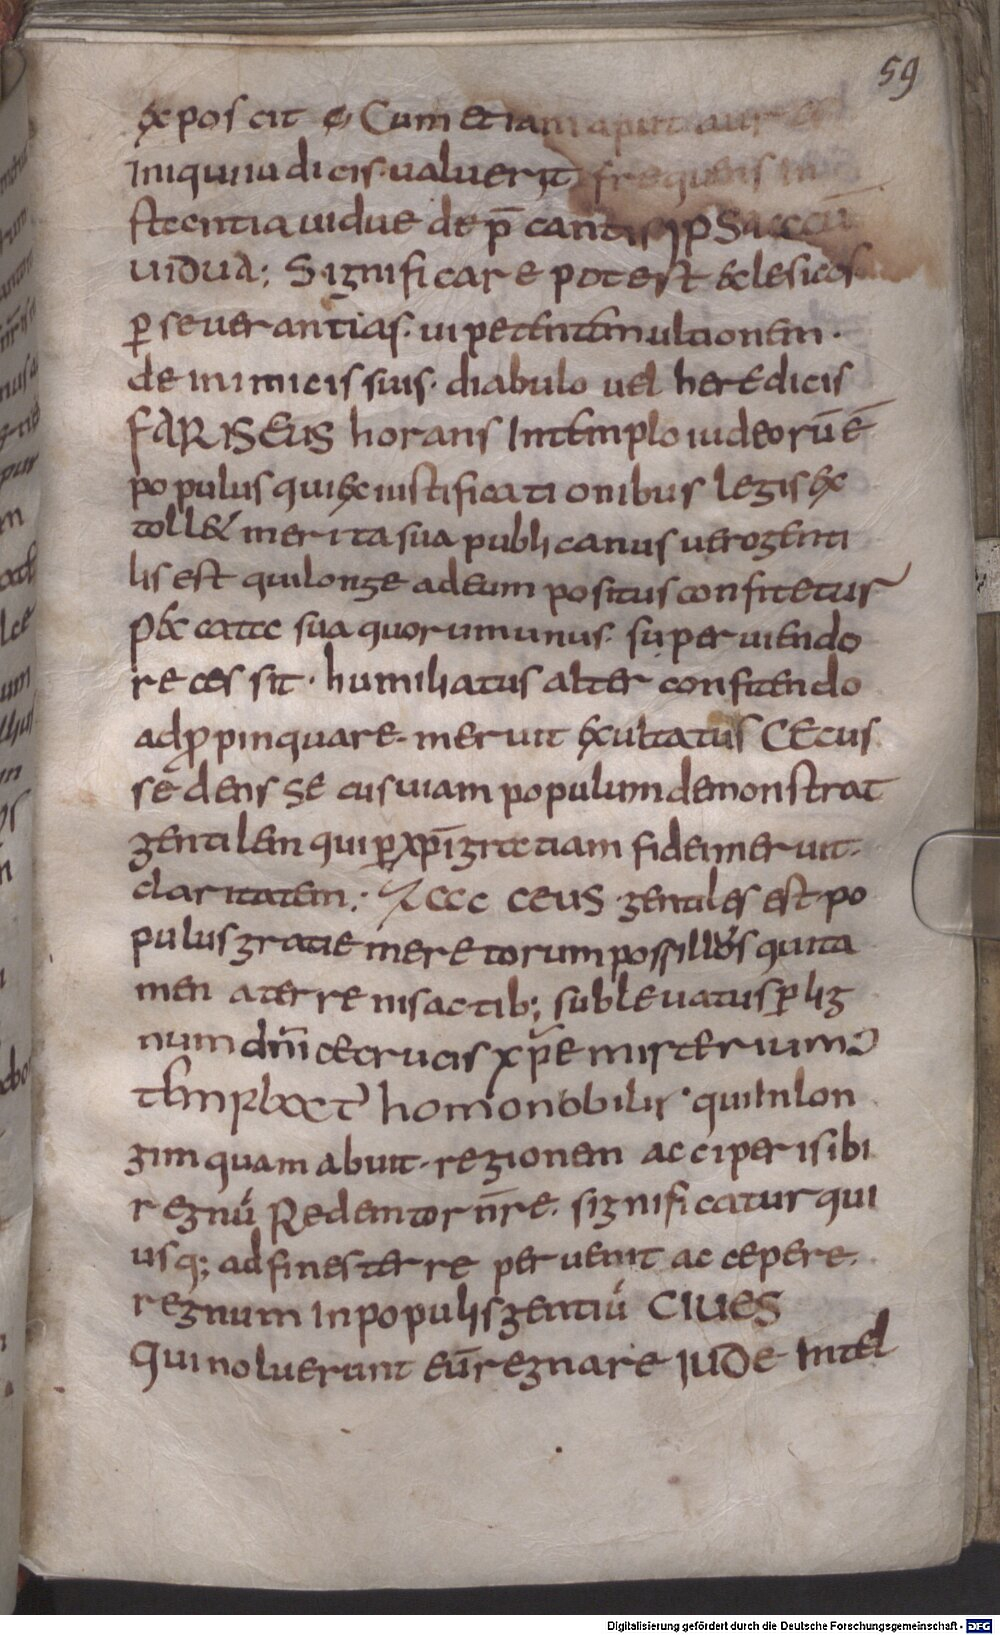 59
exposcit & Cum etiam aput aures
Iniqui iudicis ualuerit frequens In
stantia uidue dep̄cantis ipsa
uidua; Significare potest eclesicos
ꝑseuerantias. ui petentem ultionem.
de inimicis suis. diabulo uel heredicis
FARISEUS horans Intemplo iudeorū ē
populus qui ex iustificationibus legis ex
tollet merita sua publicanus uero genti
lis est qui longe a deum positus confitetur
peccata sua quorum unus. superuiendo
recessit. humiliatus alter confitendo
adꝓpinquare. meruit exultatus CECUS
sedens secus uiam populum demonstrat
gentilem qui ꝑ xp̄i gratiam fidei meruit.
claritatem; Zacceus gentiles est po
pulus gratie meretorum possillus quita
men a terrenis actib; subleuatus ꝑ lig
num dn̄i ce crucis xp̄e misterium
homo nobilis. qui In lon
ginquam abuit. regionem acciperi sibi
regnū Redemtor nr̄e. significatur qui
usq; ad fines terre peruenit accepere.
regnum In populis gentiū CIUES
Qui noluerunt eū regnare iude Intel
Digitalisierung gefördert durch die Deutsche Forschungsgemeinschaft - DFG